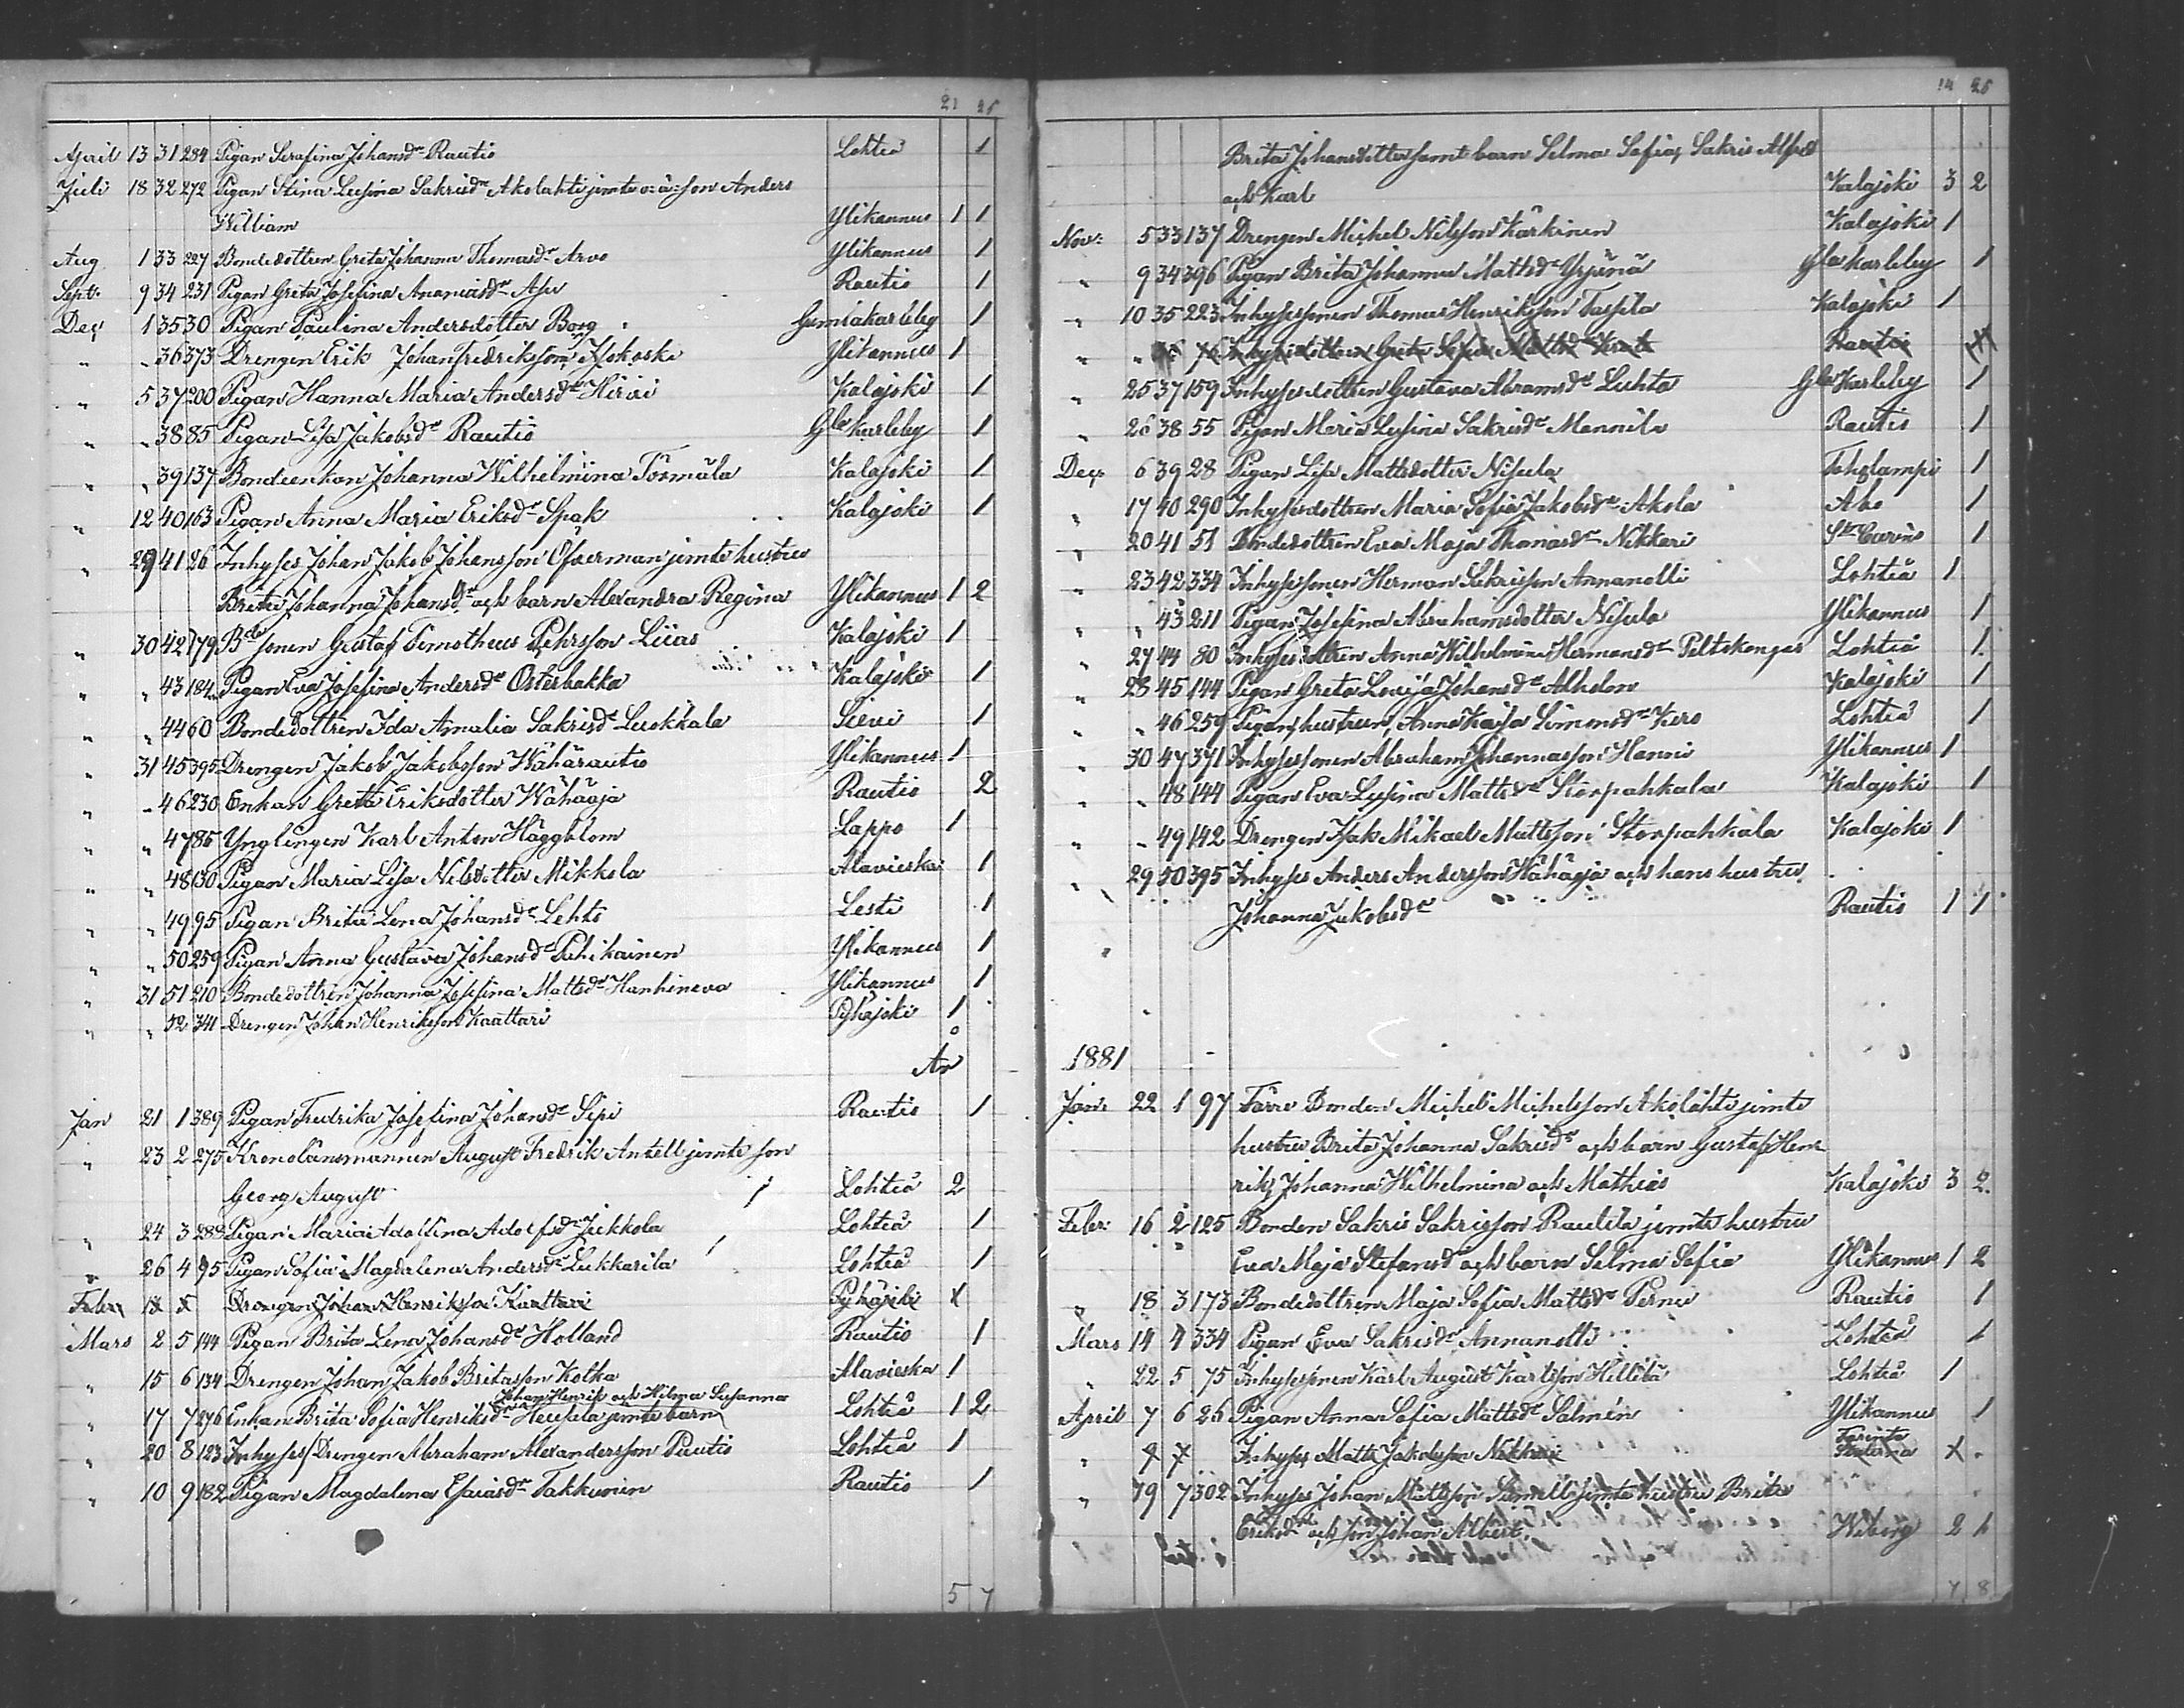 21 25
April 13 31 284 Pigan Serafina Johansdr Rautio Lohteå 1
Juli 18 32 272 Pigan Stina Lusina Sakrisdr Akolahti jemte o: ä: son Anders
William Ylikannus 1 1
Aug 1 33 227 Bondedottren Greta Johanna Thomasdr Arvo Ylikannus 1
Sept: 9 34 231 Pigan Greta Josefina Ananiasdr Rautio 1
Dec: 1 35 30 Pigan Paulina Andersdotter Borg Gamlakarleby 1
" " 36 373 Drengen Erik Johan Fredriksson Ylikannus 1
" 5 37 200 Pigan Hanna Maria Andersdr Hirvi Kalajoki 1
" " 38 85 Pigan Lisa Jakobsdr Rautio Gla Karleby 1
" " 39 137 Bondeenkan Johanna Wilhelmina Törmälä Kalajoki 1
" 12 40 163 Pigan Anna Maria Eriksdr Späk Kalajoki 1
" 29 41 26 Inhyses Johan Jakob Johansson Öfverman jemte hustru
Brita Johanna Johansdr och barn Alexandra Regina Ylikannus 1 2
" 30 42 179 Bdesonen Gustaf Timotheus Pehrsson Liias Kalajoki 1
" " 43 184 Pigan Eva Josefina Andersdr Österbakka Kalajoki 1
" " 44 60 Bondedottren Ida Amalia Sakrisdr Luokkala Sievi 1
" 31 45 395 Drengen Jakob Jakobsson Wähärautio Ylikannus 1
" " 46 230 Enkan Greta Eriksdotter Wähäoja Rautio 2
" " 47 86 Ynglingen Karl Anton Häggblom Lappo 1
" " 48 130 Pigan Maria Lisa Nilsdotter Mikkola Alavieska 1
" " 49 95 Pigan Brita Lena Johansdr Lehto Lesti 1
" " 50 259 Pigan Anna Gustava Johansdr Puhikainen Ylikannus 1
" 31 51 210 Bondedottren Johanna Josefina Mattsdr Hanhineva Ylikannus 1
" " 52 341 Drengen Johan Henriksson Kaattari Pyhäjoki 1
År
Jan 21 1 389 Pigan Fredrika Josefina Johansdr Sipi Rautio 1
" 23 2 275 Kronolänsmannen August Fredrik Antell jemte son
Georg August Lohteå 2
" 24 3 288 Pigan Maria Adolfina Adolfsdr Jukkola Lohteå 1
" 26 4 95 Pigan Sofia Magdalena Andersdr Lukkarila Lohteå 1
Febr: Drengen Johan Henriksson Kaattari Pyhäjoki
Mars 2 5 144 Pigan Brita Lena Johansdr Holland Rautio 1
" 15 6 134 Drengen Johan Jakob Britasson Kotka Alavieska 1
Johan Henrik och Hilma Susanna
" 17 7 276 Enkan Brita Sofia Henriksdr Heusala jemte barn Lohteå 1 2
" 20 8 123 Inhyses/Drengen Abraham Alexandersson Puutio Lohteå 1
" 10 9 182 Pigan Magdalena Esaiasdr Takkunen Rautio 1
5 7
14 25
Brita Johansdotter samt barn Selma Sofia, Sakris Alfred
och Karl Kalajoki 3 2
Nov: 5 33 137 Drengen Michel Nilsson Kärkinen Kalajoki 1
" 9 34 396 Pigan Brita Johanna Mattsdr Yrjänä Gla Karleby 1
" 10 35 223 Inhysessonen Thomas Henriksson Taipila Kalajoki 1
" " 36 76 Inhysesdottren Greta Sofia Mattsdr Rautio
" 25 37 159 Inhysesdottren Gustava Abramsdr Luhta Gla Karleby 1
" 26 38 55 Pigan Maria Lusina Sakrisdr Mannila Rautio 1
Dec: 6 39 28 Pigan Lisa Mattsdotter Nisula Toholampi 1
" 17 40 290 Inhysesdottren Maria Sofia Jakobsdr Akola Åbo 1
" 20 41 51 Bondedottren Eva Maja Thomasdr Nikkari 1
" 23 42 334 Inhysessonen Herman Sakrisson Annanolli Lohteå 1
" " 43 211 Pigan Josefina Abrahamsdotter Nisula Ylikannus 1
" 27 44 80 Inhysesdottren Anna Wilhelmina Hermansdr Peltokangas Lohteå 1
" 28 45 144 Pigan Greta Lovisa Johansdr Alholm Kalajoki 1
" " 46 259 Pigan, hustrun, Anna Kajsa Simonsdr Kero Lohteå 1
" 30 47 371 Inhysessonen Abraham Johannasson Hanni Ylikannus 1
" " 48 144 Pigan Eva Lusina Mattsdr Storpahkala Kalajoki 1
" " 49 142 Drengen Isak Mikael Mattsson Storpahkala Kalajoki 1
" 29 50 395 Inhyses Anders Andersson Wähäoja och hans hustru
Johanna Jakobsdr Rautio 1 1
1881
Jan: 22 1 97 Förre Bonden Michel Michelsson Akolahti jemte
hustru Brita Johanna Sakrisdr och barn Gustaf Hen
rik, Johanna Wilhelmina och Mathias Kalajoki 3 2
Febr: 16 2 125 Bonden Sakris Sakrisson Rautila jemte hustru
Eva Maja Stefansdr och barn Selma Sofia Ylikannus 1 2
" 18 3 173 Bondedottren Maja Sofia Mattsdr Pernu Rautio 1
Mars 14 4 334 Pigan Eva Sakrisdr Annanolli Lohteå 1
" 22 5 75 Inhysessonen Karl August Karlsson Hillilä Lohteå 1
April 7 6 26 Pigan Anna Sofia Mattsdr Salmén Ylikannus 1
" Inhyses Matts Jakobsson Nikkari
" 19 7 302 Inhyses Johan Mattsson Sundell jemte hustru Brita
Eriksdr och son Johan Albert. Wiborg 2 1
7 8